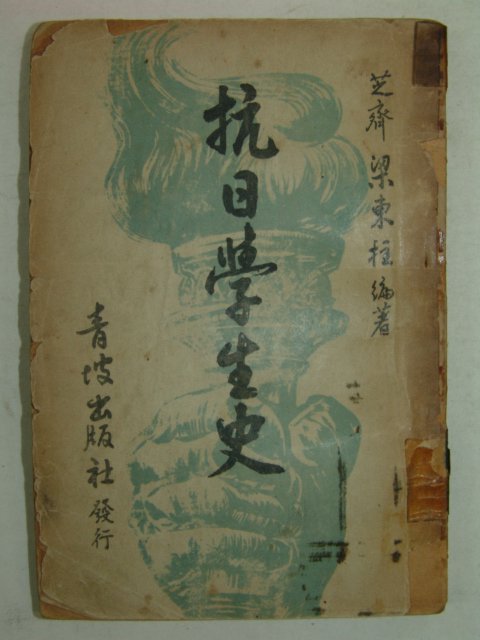 芝齋梁東柱編著
抗日學生史
青坡出版社發行